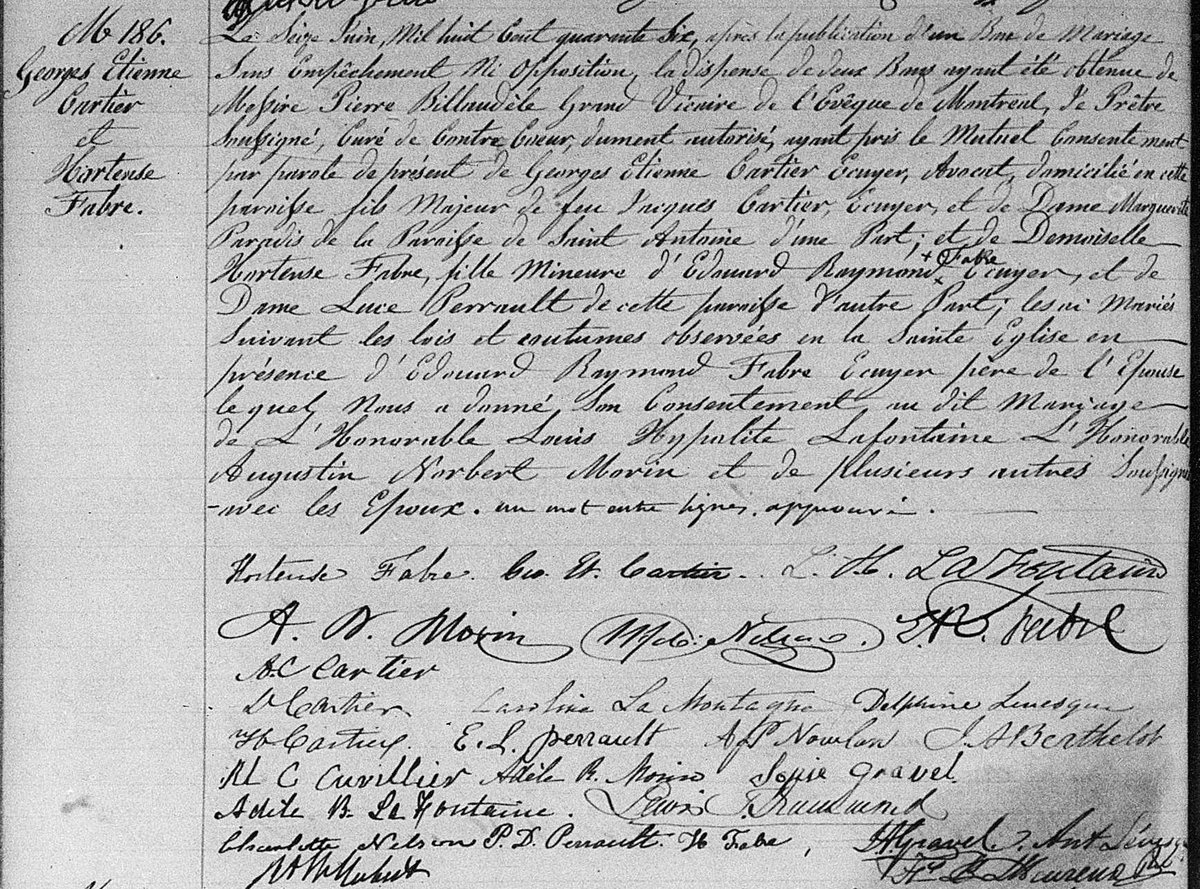 M 186.
Georges Etienne
Cartier
et
Hortense
Fabre.
Le Seize Juin, Mil huit Cent quarante Six, après la publication d'un Ban de Mariage
Sans Empêchement Ni Opposition, la dispense de deux Bans ayant été obtenue de
Messire Pierre Billaudèle Grand Vicaire de l'Evêque de Montreal, Je Prêtre
Soussigné, Curé de Contre Coeur, dument autorisé, ayant pris le Mutuel Consentement
par parole de présent de Georges Etienne Cartier Ecuyer, Avocat, domicilié en cette
paroisse fils Majeur de feu Jacques Cartier, Ecuyer, et de Dame Marguerite
Paradis de la Paroisse de Saint Antoine d'une Part; et de Demoiselle
Hortense Fabre, fille Mineure d'Edouard Raymond + Fabre Ecuyer, et de
Dame Luce Perrault de cette paroisse d'autre Part; les ai Mariés
Suivant les lois et coutumes observées en la Sainte Eglise en
présence d'Edouard Raymond Fabre Ecuyer père de l'Epouse
lequel Nous a donné Son Consentement au dit Mariage
de L'Honorable Louis Hypolite Lafontaine L'Honorable
Augustin Norbert Morin et de plusieurs autres Soussignés
avec les Epoux. un mot entre lignes, approuvé.
Hortense Fabre. Geo. Et. Cartier. L. H. LaFontaine
A. N. Morin Nelson. E. R. Fabre
A.C Cartier
D Cartier Caroline La Montagne Delphine Levesque
H Cartier. E. L. perrault Nowlan J A Berthelot
M C Cuvillier Adèle R. Morin Sophie Gravel.
Adèle B. La Fontaine. Lewis T. Drummond
Charlotte Nelson P. D. Perrault. H Fabre, Gravel. Ant Lévesque